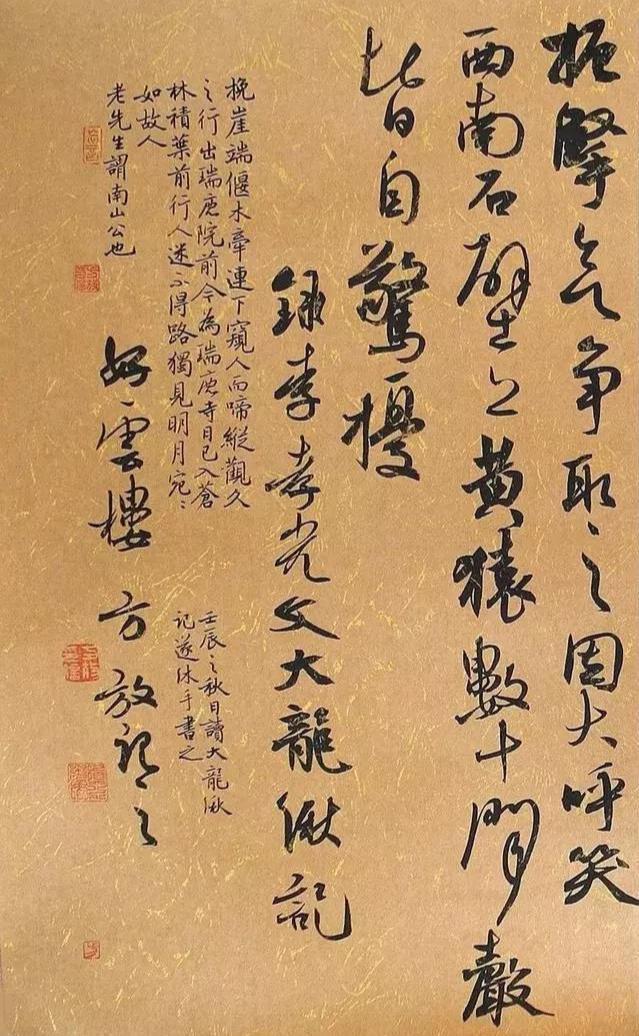 扼掔争取之因大呼笑
西南石壁上黃猿數十聞聲
皆自驚擾
録李孝光文大龍湫記
挽崖端偃木牽連下窺人而啼縱觀久
之行出瑞鹿院前今為瑞鹿寺日已入蒼
林積葉前行人迷不得路獨見明月宛〻
如故人
老先生謂南山公也
壬辰之秋日讀大龍湫
記遂休手書之
好雲樓 方放之